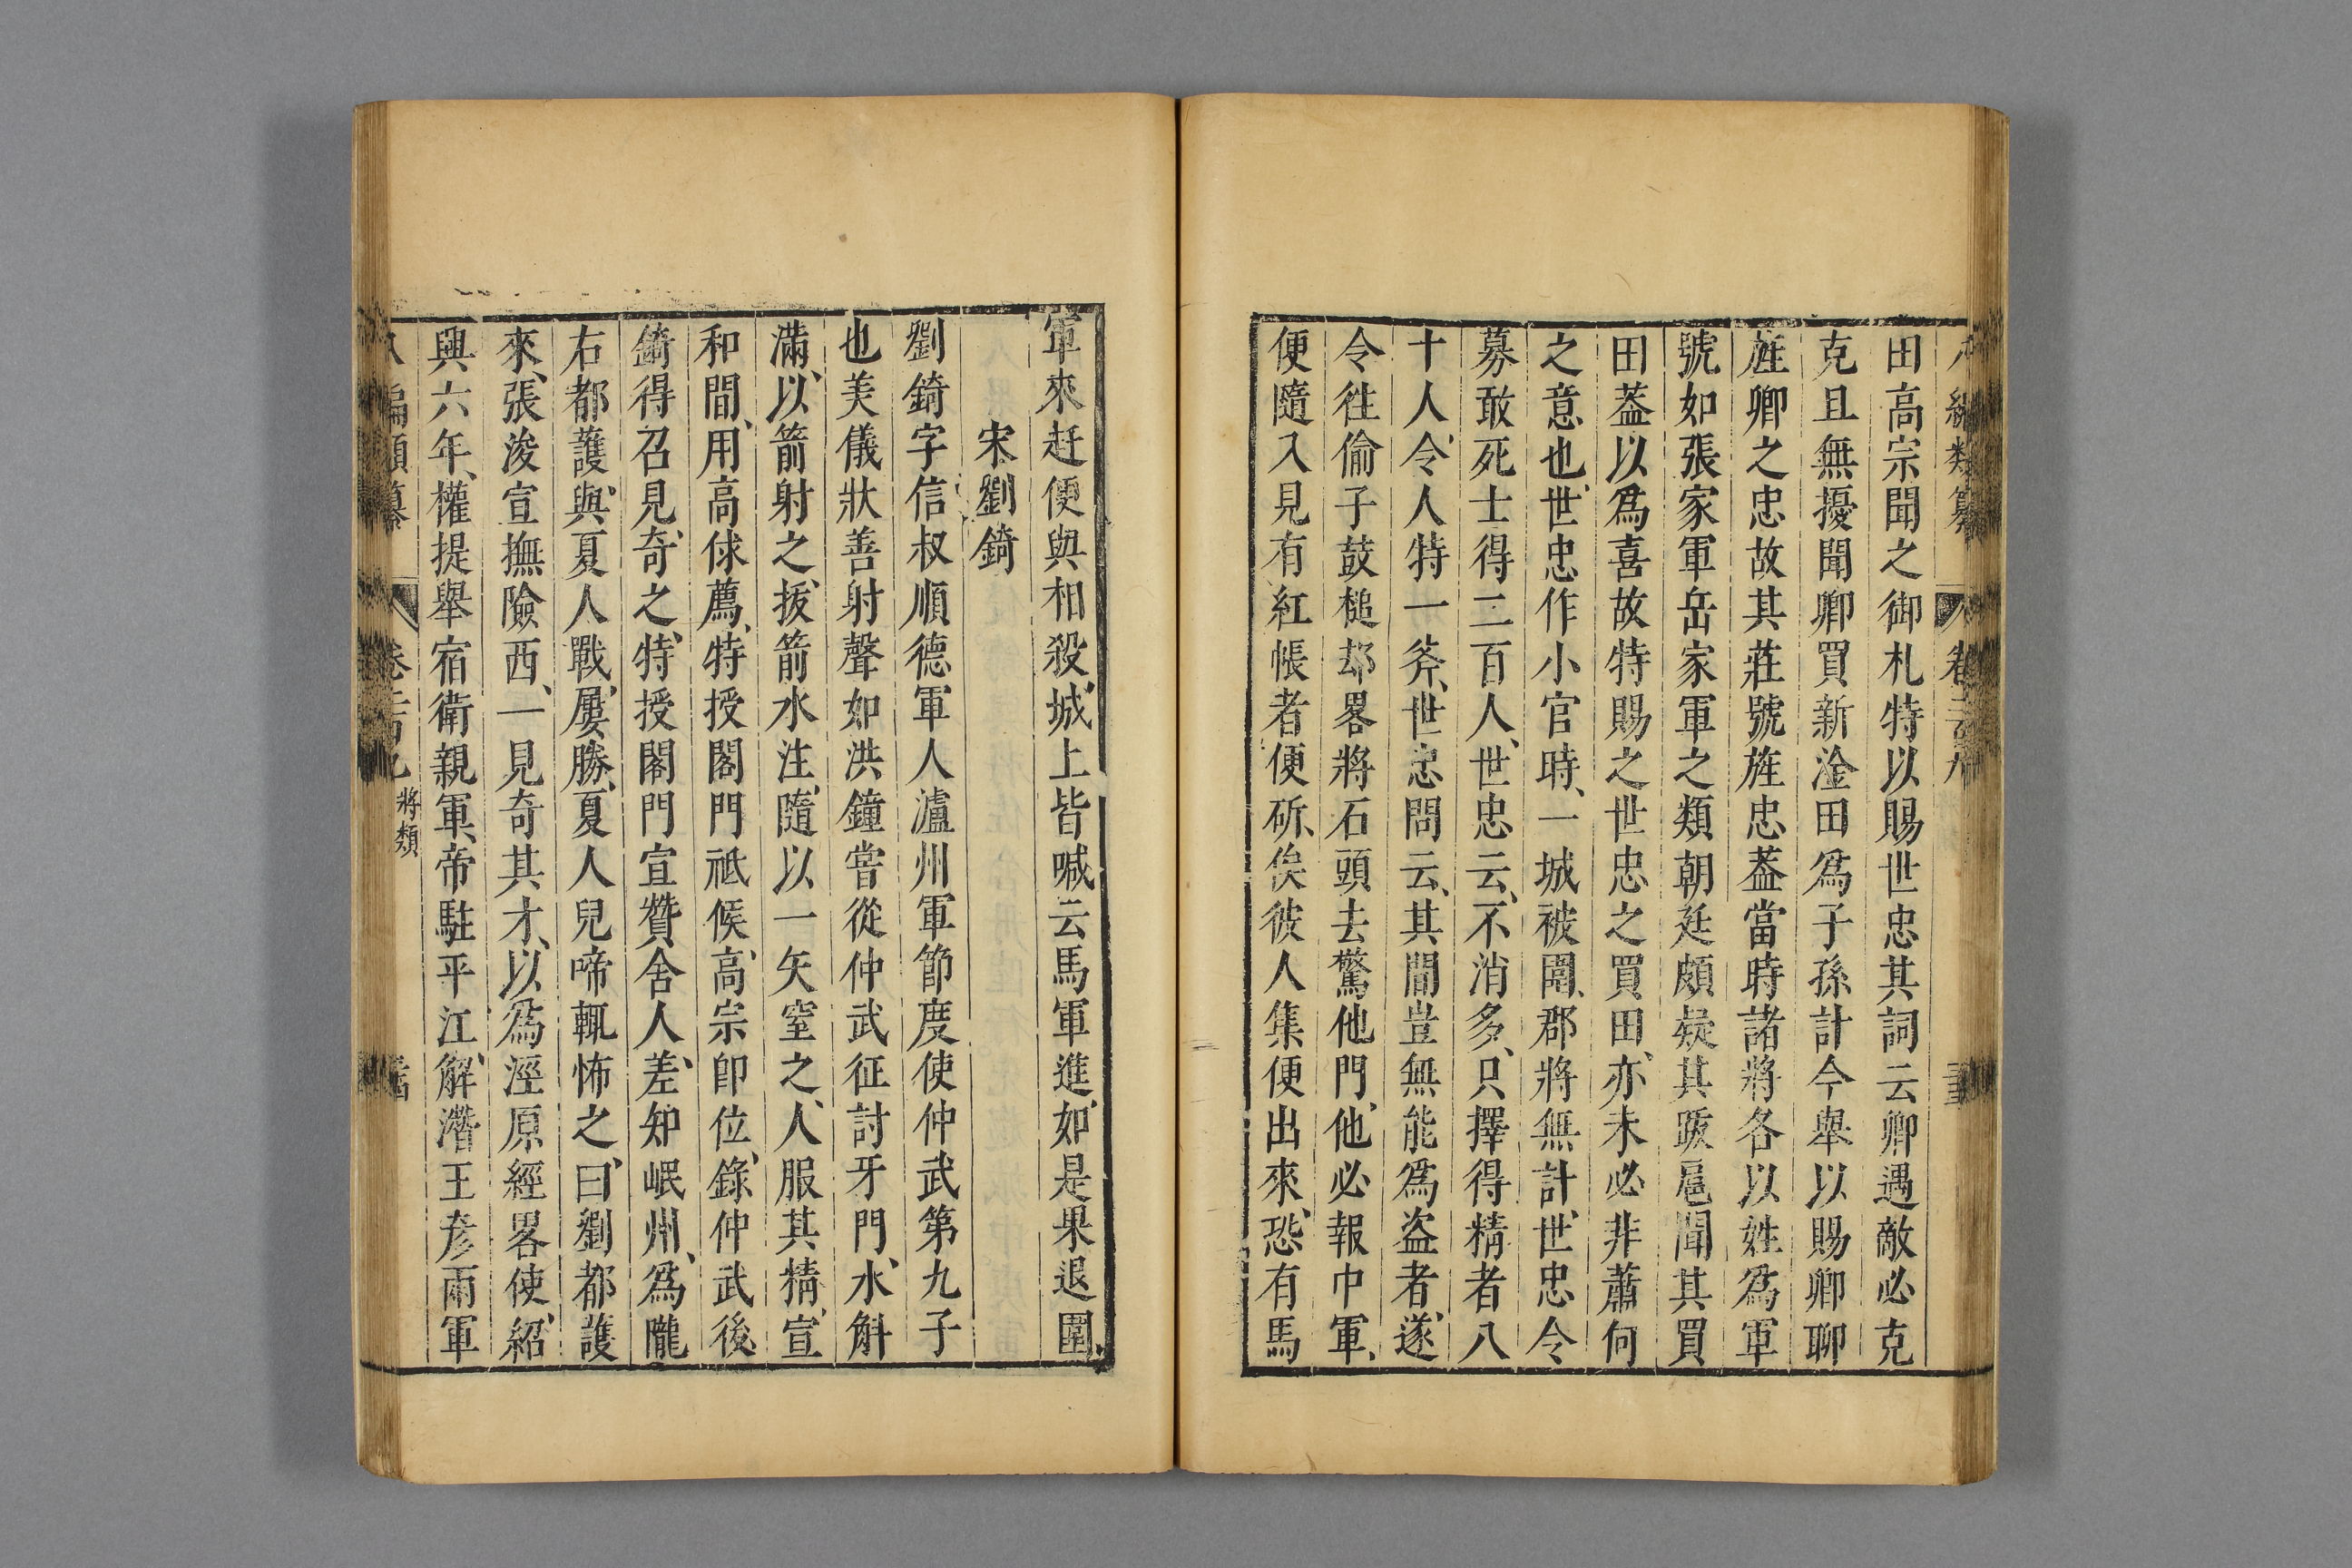 編類纂 卷二百九
田高宗聞之御札特以賜世忠其詞云卿遇敵必克
克且無擾聞卿買新淦田爲子孫計今舉以賜卿聊
旌卿之忠故其莊號旌忠葢當時諸將各以姓爲軍
號如張家軍岳家軍之類朝廷頗疑其䟦扈聞其買
田葢以爲喜故特賜之世忠之買田、亦未必非蕭何
之意也、世忠作小官時、一城被圍、郡將無計、世忠令
募敢死士得二百人、世忠云、不消多、只擇得精者八
十人、令人特一斧、世忠問云、其間豈無能爲盗者、遂
令徃偷子鼓槌却畧將石頭去驚他門、他必報中軍、
便隨入見有紅帳者便斫、俟彼人集便出來、恐有馬
軍來赶便與相殺、城上皆喊云馬軍進、如是果退圍、
宋劉錡
劉錡字信叔順德軍人瀘州軍節度使仲武第九子
也美儀狀善射聲如洪鐘嘗從仲武征討牙門、水斛
滿、以箭射之、拔箭水注、隨以一矢窒之、人服其精、宣
和間、用高俅薦、特授閤門祗候、高宗卽位、錄仲武後、
錡得召見、奇之、特授閤門宣贊舍人、差知岷州、爲隴
右都護、與夏人戰、屢勝、夏人兒啼輒怖之、曰劉都護
來、張浚宣撫陝西、一見奇其才、以爲涇原經畧使、紹
興六年、權提舉宿衛親軍、帝駐平江、解潛王彥兩軍
編類纂 卷 將類